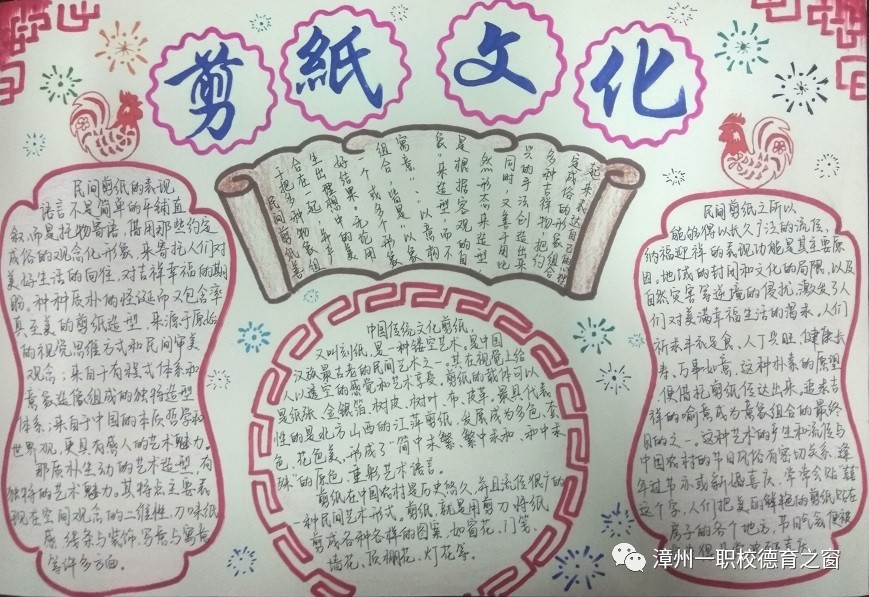 剪紙文化
民间剪纸的表现
语言不是简单的平铺直
叙,而是托物寄语,借用那些约定
成俗的观念化形象,来寄托人们对
美好生活的向往,对吉祥幸福的期
盼。种种质朴的怪诞而又包含率
真至美的剪纸造型,来源于原始
的视觉思维方式和民间审美
观念;来自于有程式体系和
意象造像组成的独特造型
体系;来自于中国的本质哲学和
世界观,更具有感人的艺术魅力。
那质朴生动的艺术造型,有
独特的艺术魅力。其特点主要表
现在空间观念的二维性,刀味纸
感,线条与装饰,写意与寓意
等许多方面。
民间剪纸善
于把多种物象组
合在一起,并产
生出理想中的美
好结果。无论用
一个或多个形象
组合,皆是“以象
寓意”、“以意构
象”来造型,而不
是根据客观的自
然形态来造型,
同时,又善于用比
兴的手法创造出来
多种吉祥物,把约
定成俗的形象组合
起来表达自己的
中国传统文化剪纸,
又叫刻纸,是一种镂空艺术,是中国
汉族最古老的民间艺术之一。其在视觉上给
人以透空的感觉和艺术享受,剪纸的载体可以
是纸张、金银箔、树皮、树叶、布、皮、革,最具代表
性的是北方山西的江萍剪纸,发展成为多色、套
色、花色美,形成了“简中求繁、繁中求和、和中求
的原色,重彩艺术语言。
剪纸在中国农村是历史悠久,并且流传很广的
一种民间艺术形式。剪纸,就是用剪刀将纸
剪成各种各样的图案,如窗花、门笺、
墙花、顶棚花、灯花等。
民间剪纸之所以
能够偶以长久广泛的流传,
纳福迎祥的表现功能是其主要原
因。地域的封闭和文化的局限,以及
自然灾害等逆境的侵扰,激发了人
们对美满幸福生活的渴求,人们
祈求丰衣足食,人丁兴旺,健康长
寿,万事如意,这种朴素的愿望
便借托剪纸传达出来,追求吉
祥的喻意成为意象组合的最终
目的之一。这种艺术的产生和流传与
中国农村的节日风俗有密切关系,逢
年过节亦或新婚喜庆,常常会贴囍
这个字,人们把美丽鲜艳的剪纸贴在
房子的各个地方,节日气氛便被
漳州一职校德育之窗